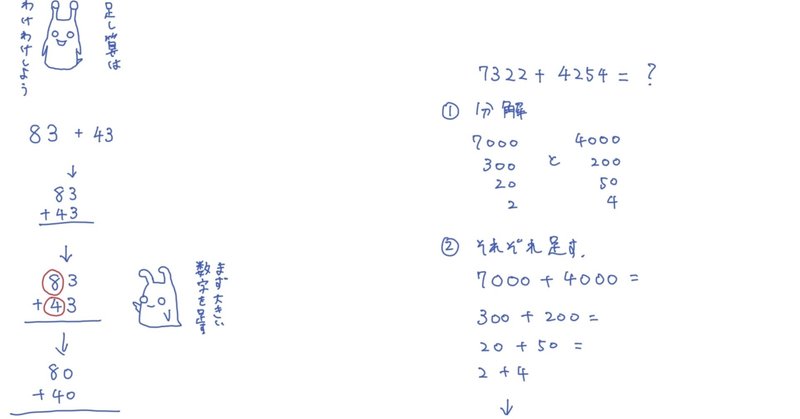 足し算は
わけわけしよう
83 + 43
↓
83
+43
↓
83
+43
まず大きい
数字を足す
↓
80
+40
7322 + 4254 = ?
① 分解
7000 4000
300 と 200
20 50
2 4
② それぞれ足す.
7000 + 4000 =
300 + 200 =
20 + 50 =
2 + 4
↓